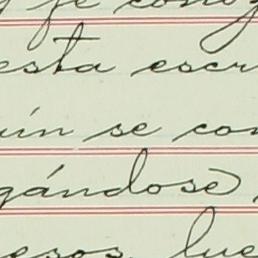 y fe cono
esta escr
ún se con
gándose,
esos, lue